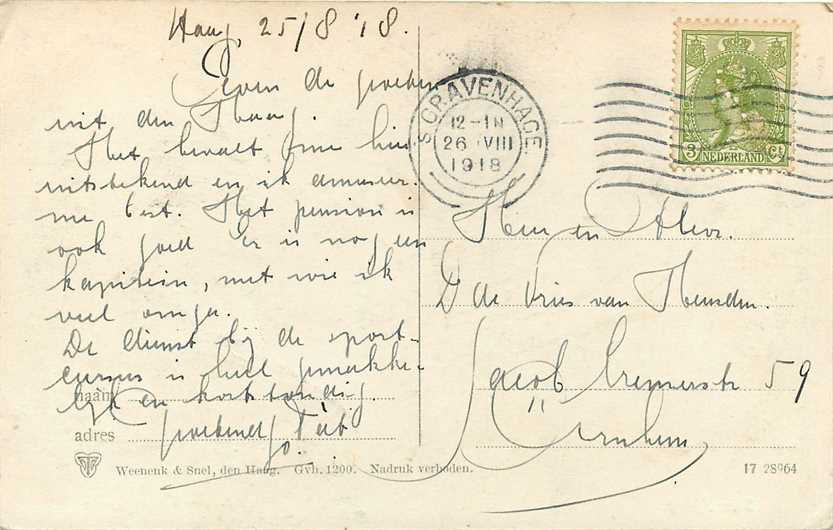 Haag, 25/8 '18.
Even de groeten
uit den Haag.
Het bevalt me hier
uitstekend en ik amuseer
me best. Het pension is
ook goed er is nog een
kapitein, met wie ik
veel omga.
De dienst bij de sport-
cursus is heel gemakke-
lijk en kortstondig.
naam
groetend,
adres
Weenenk & Snel, den Haag. Gvh. 1200. Nadruk verboden.
'S GRAVENHAGE
12-1N
26 VIII
1918
3 Ct
NEDERLAND
Heer en Mevr.
D de Vries van Heusden.
Jacob Cremerstr 59
Arnhem
17 28964